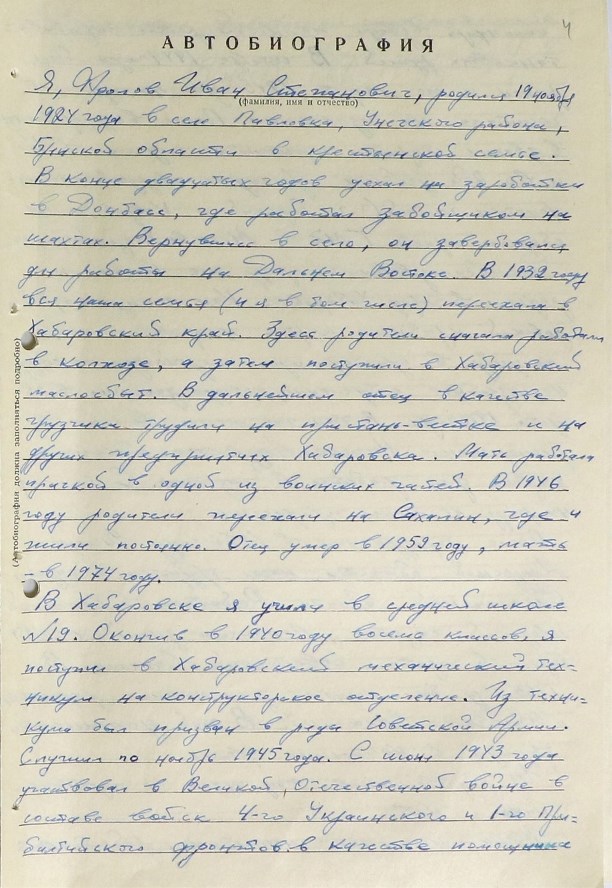 4
АВТОБИОГРАФИЯ
Я, Фролов Иван Степанович, родился 19 ноября
(фамилия, имя и отчество)
1924 года в селе Павловка, Унечского района,
Брянской области в крестьянской семье.
В конце двадцатых годов уехал на заработки
в Донбасс, где работал забойщиком на
шахтах. Вернувшись в село, он завербовался
для работы на Дальнем Востоке. В 1932 году
вся наша семья (и я в том числе) переехала в
Хабаровский край. Здесь родители сначала работали
в колхозе, а затем поступили в Хабаровский
маслосбыт. В дальнейшем отец в качестве
грузчика трудился на пристань-ветке и на
других предприятиях Хабаровска. Мать работала
прачкой в одной из воинских частей. В 1946
году родители переехали на Сахалин, где и
жили постоянно. Отец умер в 1959 году, мать
- в 1974 году.
В Хабаровске я учился в средней школе
№19. Окончив в 1940 году восемь классов, я
поступил в Хабаровский механический тех=
никум на конструкторское отделение. Из техни=
кума был призван в ряды Советской Армии.
Служил по ноябрь 1945 года. С июня 1943 года
участвовал в Великой Отечественной войне в
составе войск 4-го Украинского и 1-го При=
балтийского фронтов в качестве помощника
(Автобиография должна заполняться подробно)